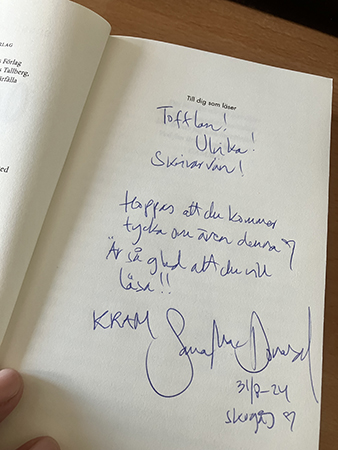 RLAG
s Förlag
s Tallberg,
ärfälla
ed
Till dig som läser
Tofflan!
Ulrika!
Skrivarvän!
Hoppas att du kommer
tycka om även denna ♡
Är så glad att du vill
läsa!!
KRAM Sara
31/8-24
Skogås ♡